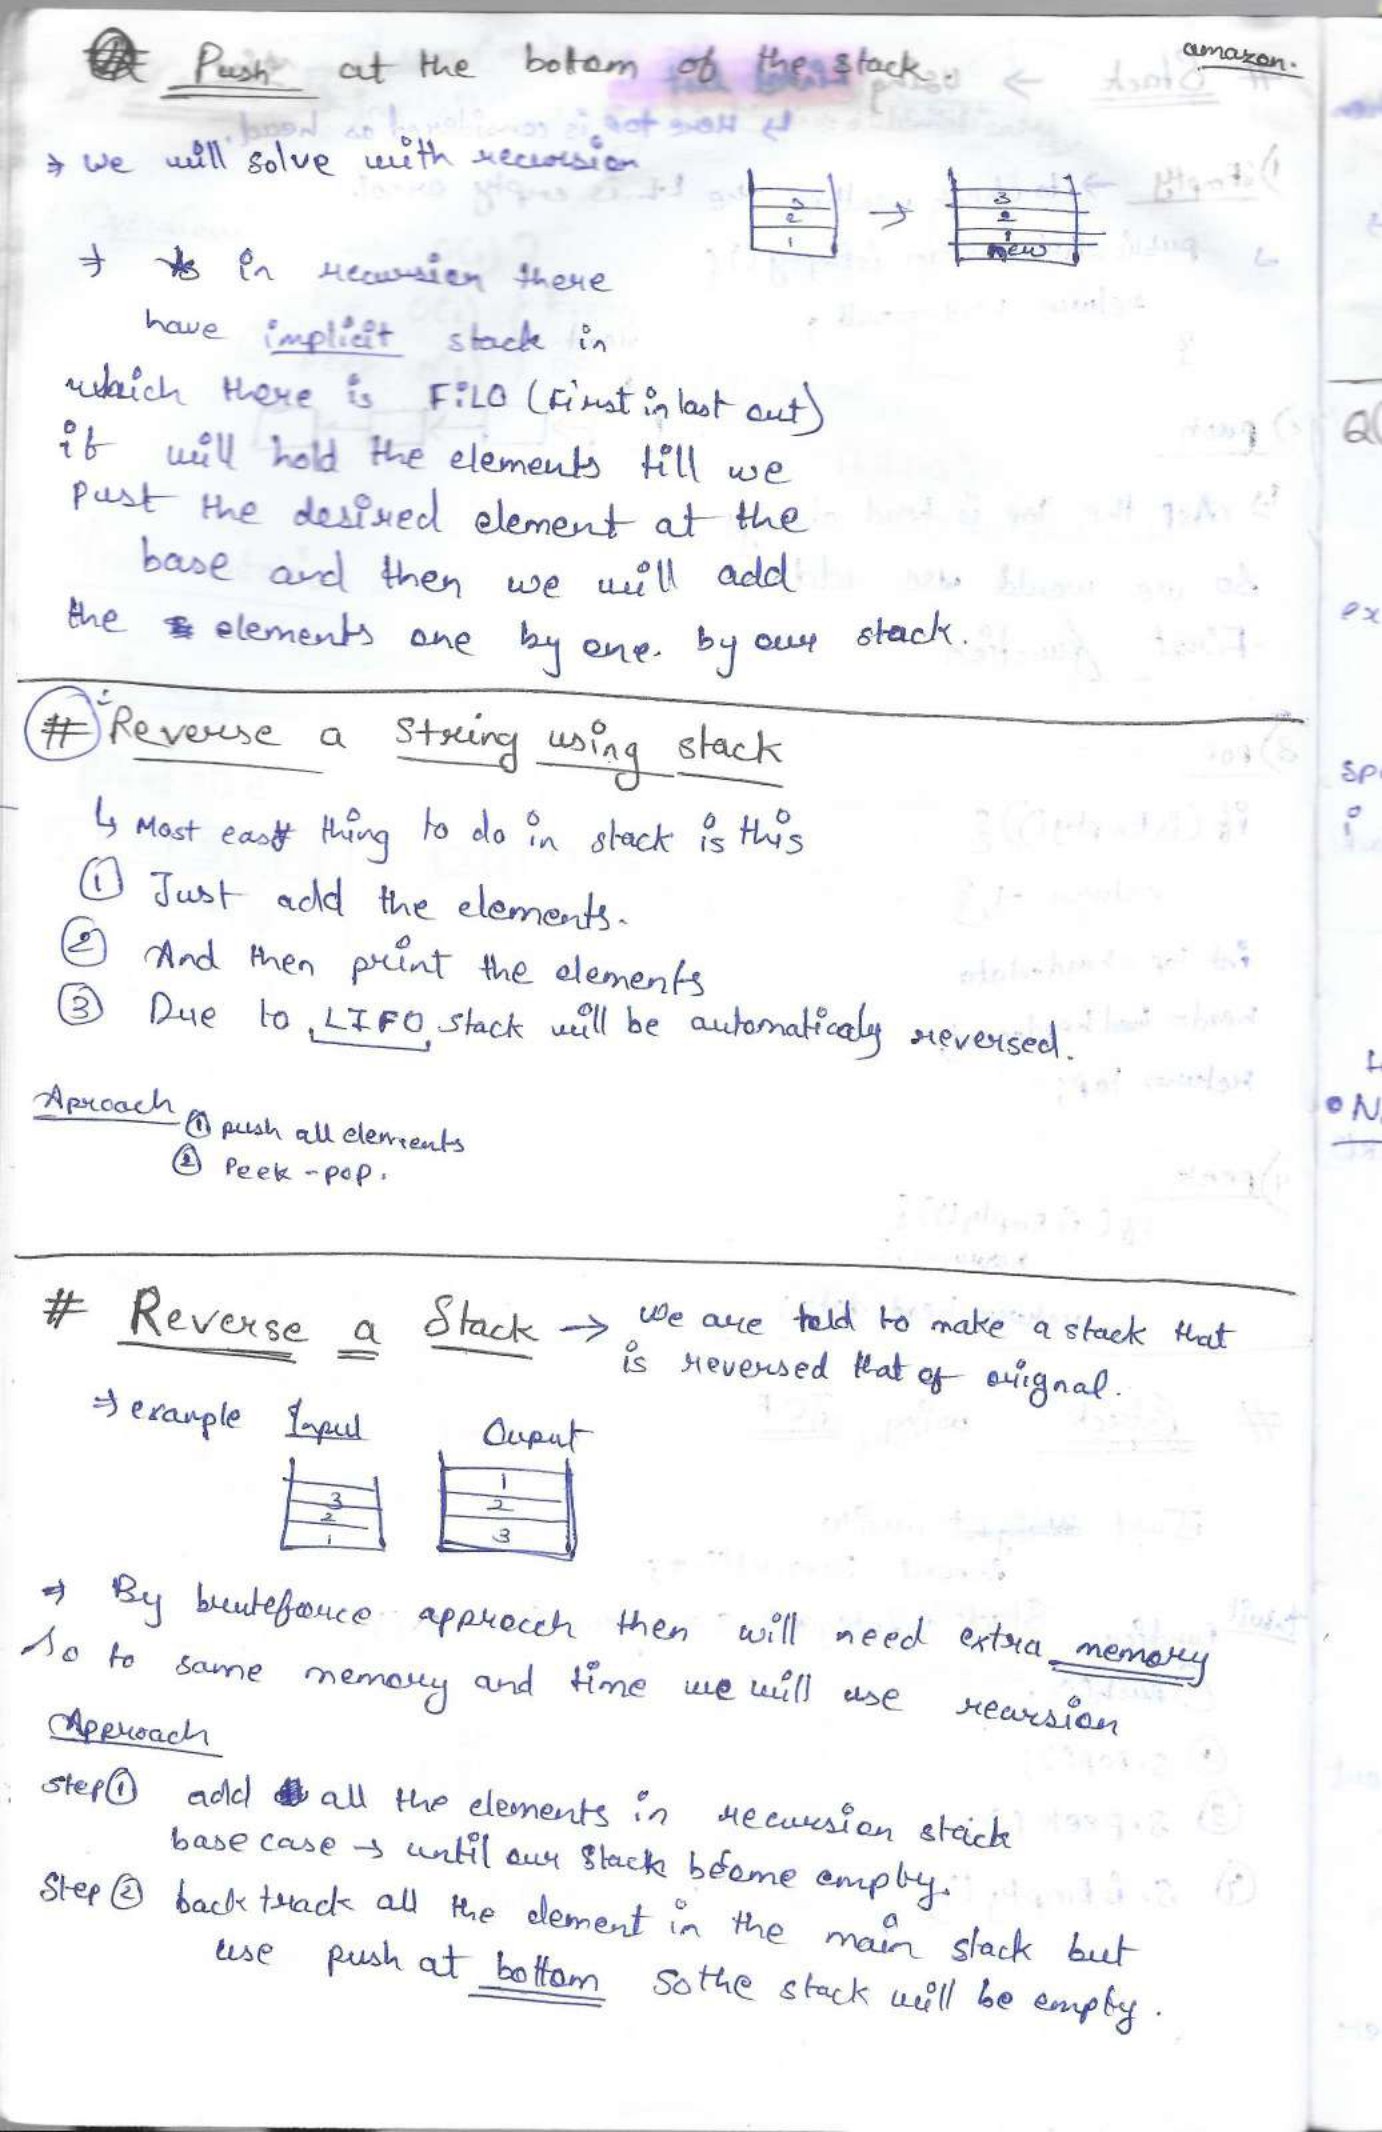 # Push at the botom of the stack.
amazon.
→ we will solve with recursion
3
2
1
→
3
2
1
new
→ in recursion there
have implicit stack in
which there is FiLO (First in last out)
it will hold the elements till we
Pust the desired element at the
base and then we will add
the elements one by one. by our stack.
# Reverse a String using stack
↳ Most easy thing to do in stack is this
① Just add the elements.
② And then print the elements
③ Due to LIFO stack will be automaticaly reversed.
Aproach
① push all elements
② Peek - pop.
# Reverse a Stack → we are told to make a stack that
is reversed that of orignal.
⇒ example Input Ouput
3
2
1
1
2
3
⇒ By bruteforce approach then will need extra memory
so to same memory and time we will use recursion
Approach
Step ① add all the elements in recursion stack
base case → until our stack become empty.
Step ② back track all the element in the main stack but
use push at bottom so the stack will be empty.